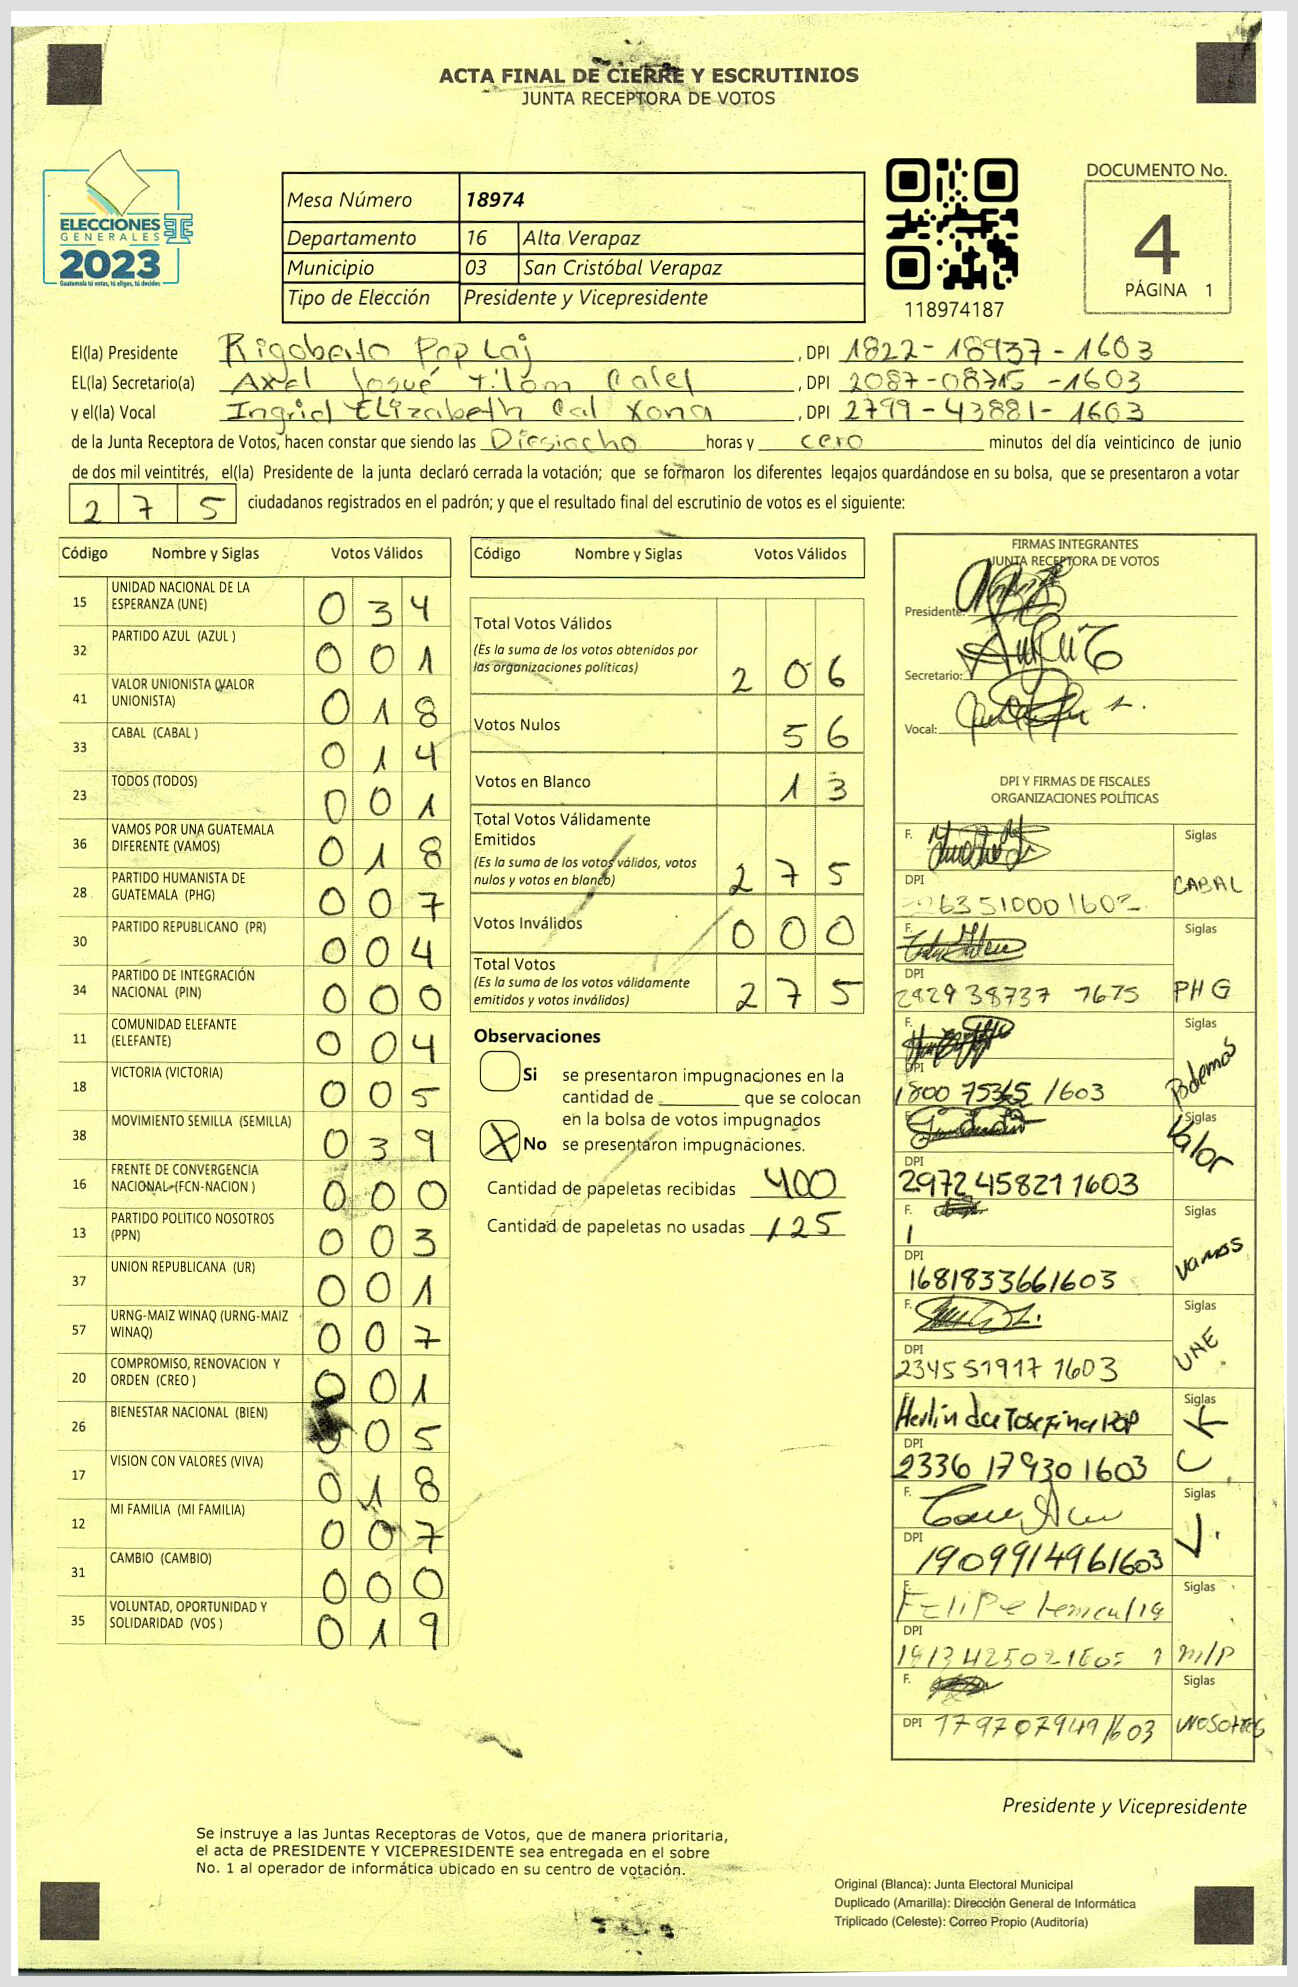 ACTA FINAL DE CIERRE Y ESCRUTINIOS
JUNTA RECEPTORA DE VOTOS
ELECCIONES
GENERALES
2023
Guatemala tú votas, tú eliges, tú decides
Mesa Número 18974
Departamento 16 Alta Verapaz
Municipio 03 San Cristóbal Verapaz
Tipo de Elección Presidente y Vicepresidente
118974187
DOCUMENTO No.
4
PÁGINA 1
El(la) Presidente Rigoberto Pop Laj, DPI 1822-18937-1603
EL(la) Secretario(a) Axel Josué Tilom Calel, DPI 2087-08715-1603
y el(la) Vocal Ingrid Elizabeth Cal Xona, DPI 2799-43881-1603
de la Junta Receptora de Votos, hacen constar que siendo las Diesiocho horas y cero minutos del día veinticinco de junio
de dos mil veintitrés, el(la) Presidente de la junta declaró cerrada la votación; que se formaron los diferentes legajos guardándose en su bolsa, que se presentaron a votar
275 ciudadanos registrados en el padrón; y que el resultado final del escrutinio de votos es el siguiente:
Código Nombre y Siglas Votos Válidos
15 UNIDAD NACIONAL DE LA ESPERANZA (UNE) 034
32 PARTIDO AZUL (AZUL ) 001
41 VALOR UNIONISTA (VALOR UNIONISTA) 018
33 CABAL (CABAL ) 014
23 TODOS (TODOS) 001
36 VAMOS POR UNA GUATEMALA DIFERENTE (VAMOS) 018
28 PARTIDO HUMANISTA DE GUATEMALA (PHG) 007
30 PARTIDO REPUBLICANO (PR) 004
34 PARTIDO DE INTEGRACIÓN NACIONAL (PIN) 000
11 COMUNIDAD ELEFANTE (ELEFANTE) 004
18 VICTORIA (VICTORIA) 005
38 MOVIMIENTO SEMILLA (SEMILLA) 039
16 FRENTE DE CONVERGENCIA NACIONAL (FCN-NACION ) 000
13 PARTIDO POLITICO NOSOTROS (PPN) 003
37 UNION REPUBLICANA (UR) 001
57 URNG-MAIZ WINAQ (URNG-MAIZ WINAQ) 007
20 COMPROMISO, RENOVACION Y ORDEN (CREO ) 001
26 BIENESTAR NACIONAL (BIEN) 005
17 VISION CON VALORES (VIVA) 018
12 MI FAMILIA (MI FAMILIA) 007
31 CAMBIO (CAMBIO) 000
35 VOLUNTAD, OPORTUNIDAD Y SOLIDARIDAD (VOS ) 019
Código Nombre y Siglas Votos Válidos
Total Votos Válidos
(Es la suma de los votos obtenidos por
las organizaciones políticas) 206
Votos Nulos 56
Votos en Blanco 13
Total Votos Válidamente
Emitidos
(Es la suma de los votos válidos, votos
nulos y votos en blanco) 275
Votos Inválidos 000
Total Votos
(Es la suma de los votos válidamente
emitidos y votos inválidos) 275
Observaciones
Si se presentaron impugnaciones en la
cantidad de ________ que se colocan
en la bolsa de votos impugnados
X No se presentaron impugnaciones.
Cantidad de papeletas recibidas 400
Cantidad de papeletas no usadas 125
FIRMAS INTEGRANTES
JUNTA RECEPTORA DE VOTOS
Presidente:
Secretario:
Vocal:
DPI Y FIRMAS DE FISCALES
ORGANIZACIONES POLÍTICAS
F. Siglas
DPI CABAL
F. Siglas
DPI
2829 38737 7675 PHG
F. Siglas
DPI Podemos
1800 75365 1603
F. Siglas
DPI Valor
2972 45821 1603
F. Siglas
DPI Vamos
1681833661603
F. Siglas
DPI UNE
234551917 1603
Siglas
DPI
2336 17930 1603
F. Siglas
DPI V.
1909914961603
F. Felipe Siglas
DPI
M/P
F. Siglas
DPI 1797079491603 NOSOTROS
Presidente y Vicepresidente
Se instruye a las Juntas Receptoras de Votos, que de manera prioritaria,
el acta de PRESIDENTE Y VICEPRESIDENTE sea entregada en el sobre
No. 1 al operador de informática ubicado en su centro de votación.
Original (Blanca): Junta Electoral Municipal
Duplicado (Amarilla): Dirección General de Informática
Triplicado (Celeste): Correo Propio (Auditoría)